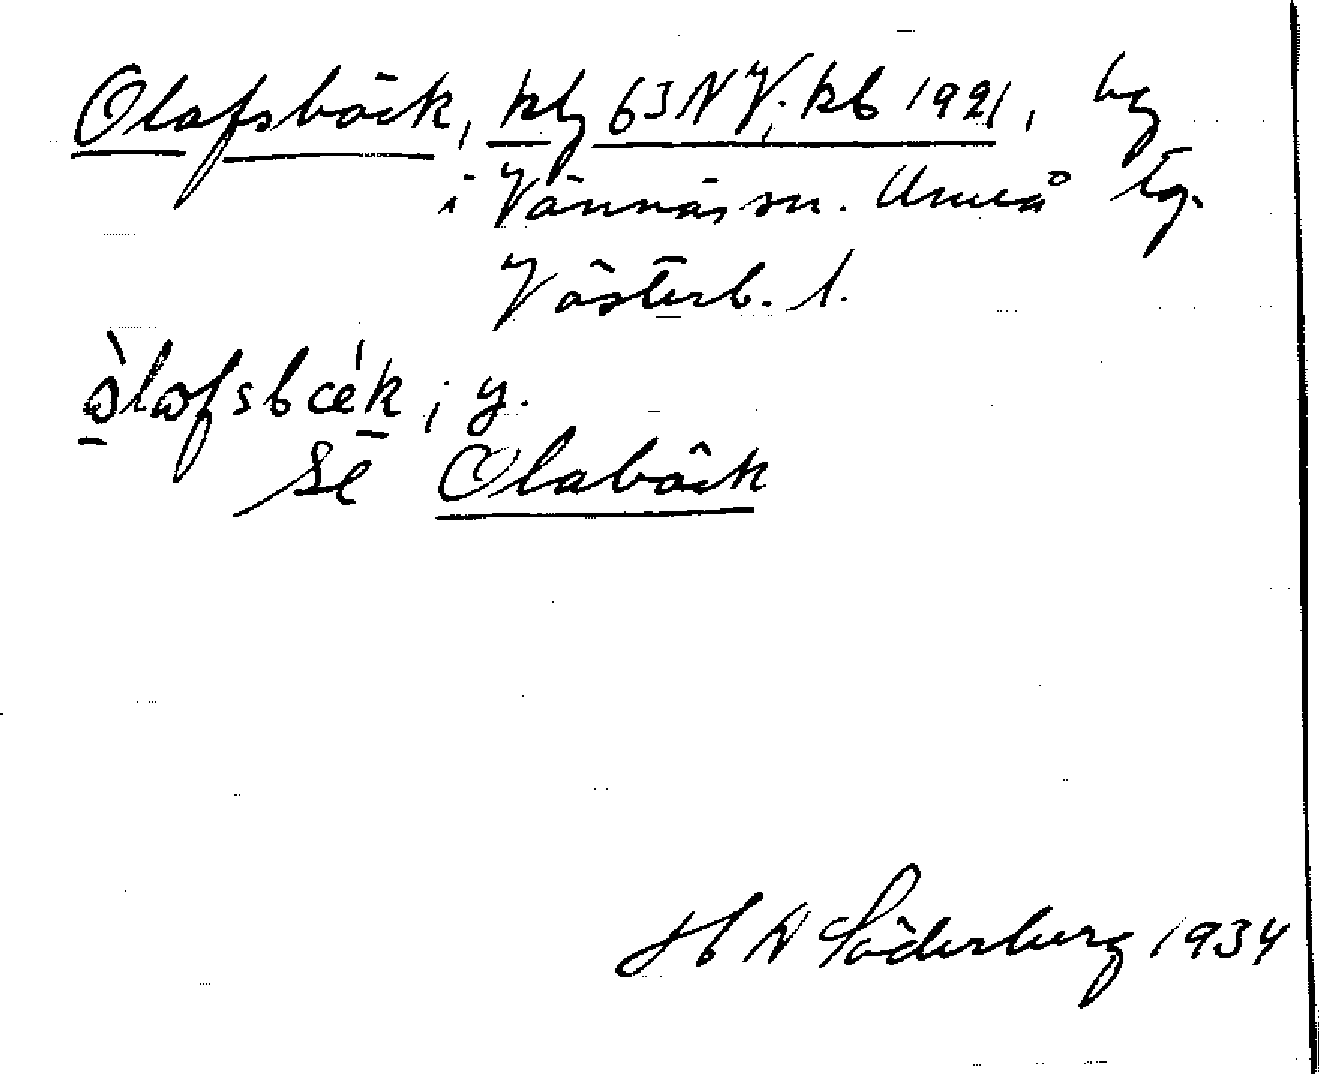 Olafsbäck, kbl 63 NV; kb 1921, by
i Vännäs sn. Umeå tg.
Västerb. l.
òlafsbæ̀k, y.
se Olabäck
H N Söderberg 1934